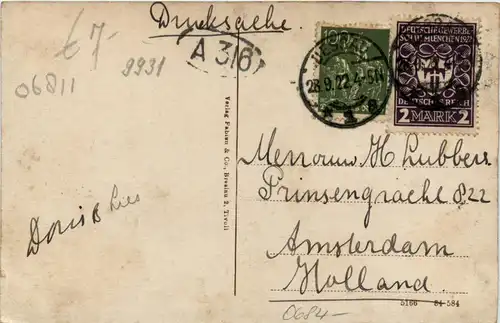 Drucksache.
£ 7-
06811
9931
A 316
100
28.9.22.4-5N
* 1 e
DEUTSCHE GEWERBE
SCHAU MÜNCHEN 1922
DEUTSCHES REICH
2 MARK 2
Verlag Fabian & Co., Breslau 2, Tivoli
Doris
Mevrouw H Lubbers
Prinsengracht 822
Amsterdam
Holland.
5166 84-584
0684-